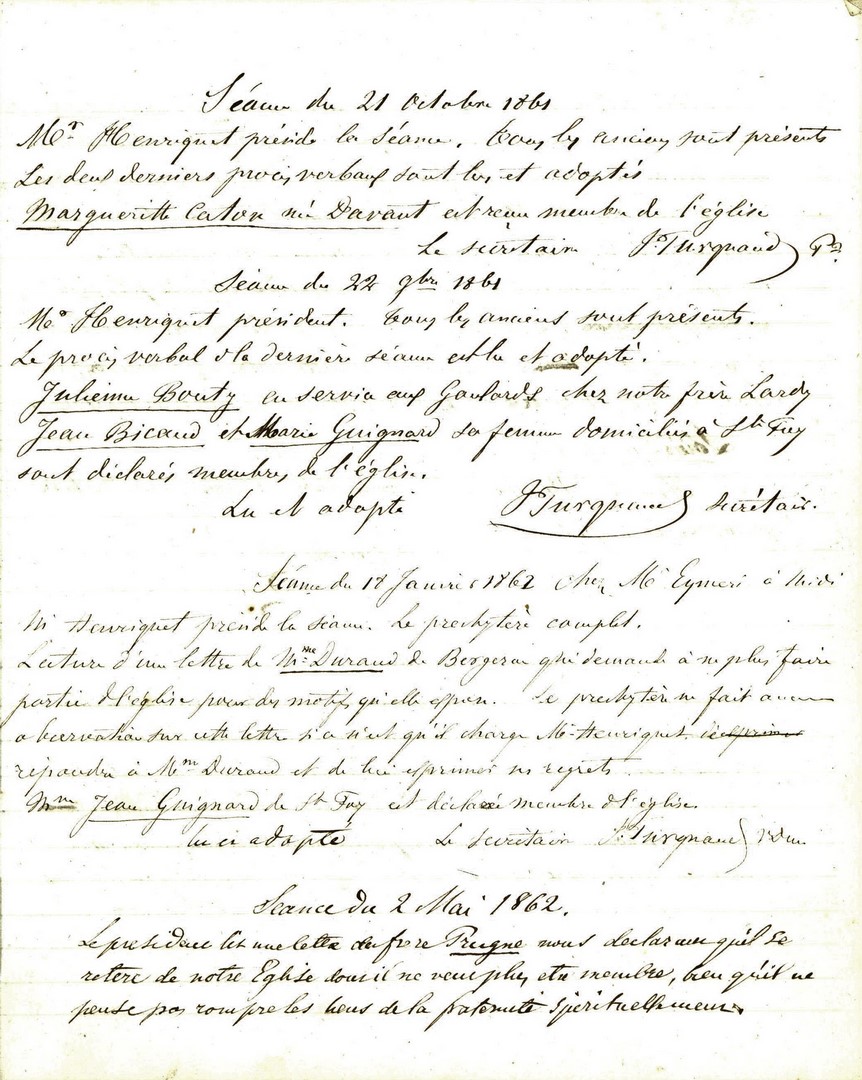 Séance du 21 Octobre 1861
Mr Henriquet préside la séance. Tous les anciens sont présents
Les deux derniers procès verbaux sont lus et adoptés
Margueritte Caton né Davant est reçu membre de l'église
Le secrétaire J. Turgnaud
Séance du 22 9bre 1861
Mr Henriquet président. Tous les anciens sont présents.
Le procès verbal d la dernière séance est lu et adopté.
Julienne Bouty en service aux Goulards chez notre frère Lardy
Jean Bicaud et Marie Guignard sa femme domiciliés à Ste Foy
sont déclarés membres de l'église.
Lu et adopté J Turgnaud secrétair.
Séance du 18 Janvier 1862 chez Mr Eymeri à midi
Mr Henriquet préside la séance. Le presbytère complet.
Lecture d'une lettre de Mme Durand de Bergerac qui demande à ne plus faire
partie d l'église pour des motifs qu'elle expose. Le presbytère ne fait aucune
observation sur cette lettre si ce n'est qu'il charge Mr Henriquet
répondre à Mme Durand et de lui exprimer ses regrets.
Mme Jean Guignard de Ste Foy est déclarée membre d l'église
lu et adopté Le secrétaire J. Turgnaud
Seance du 2 Mai 1862.
Le president lit une lettre du frere Prugne nous declarant qu'il se
retire de notre Eglise dont il ne veut plus etre membre, bien qu'il ne
pense pas rompre les liens de la fraternité spirituellement.